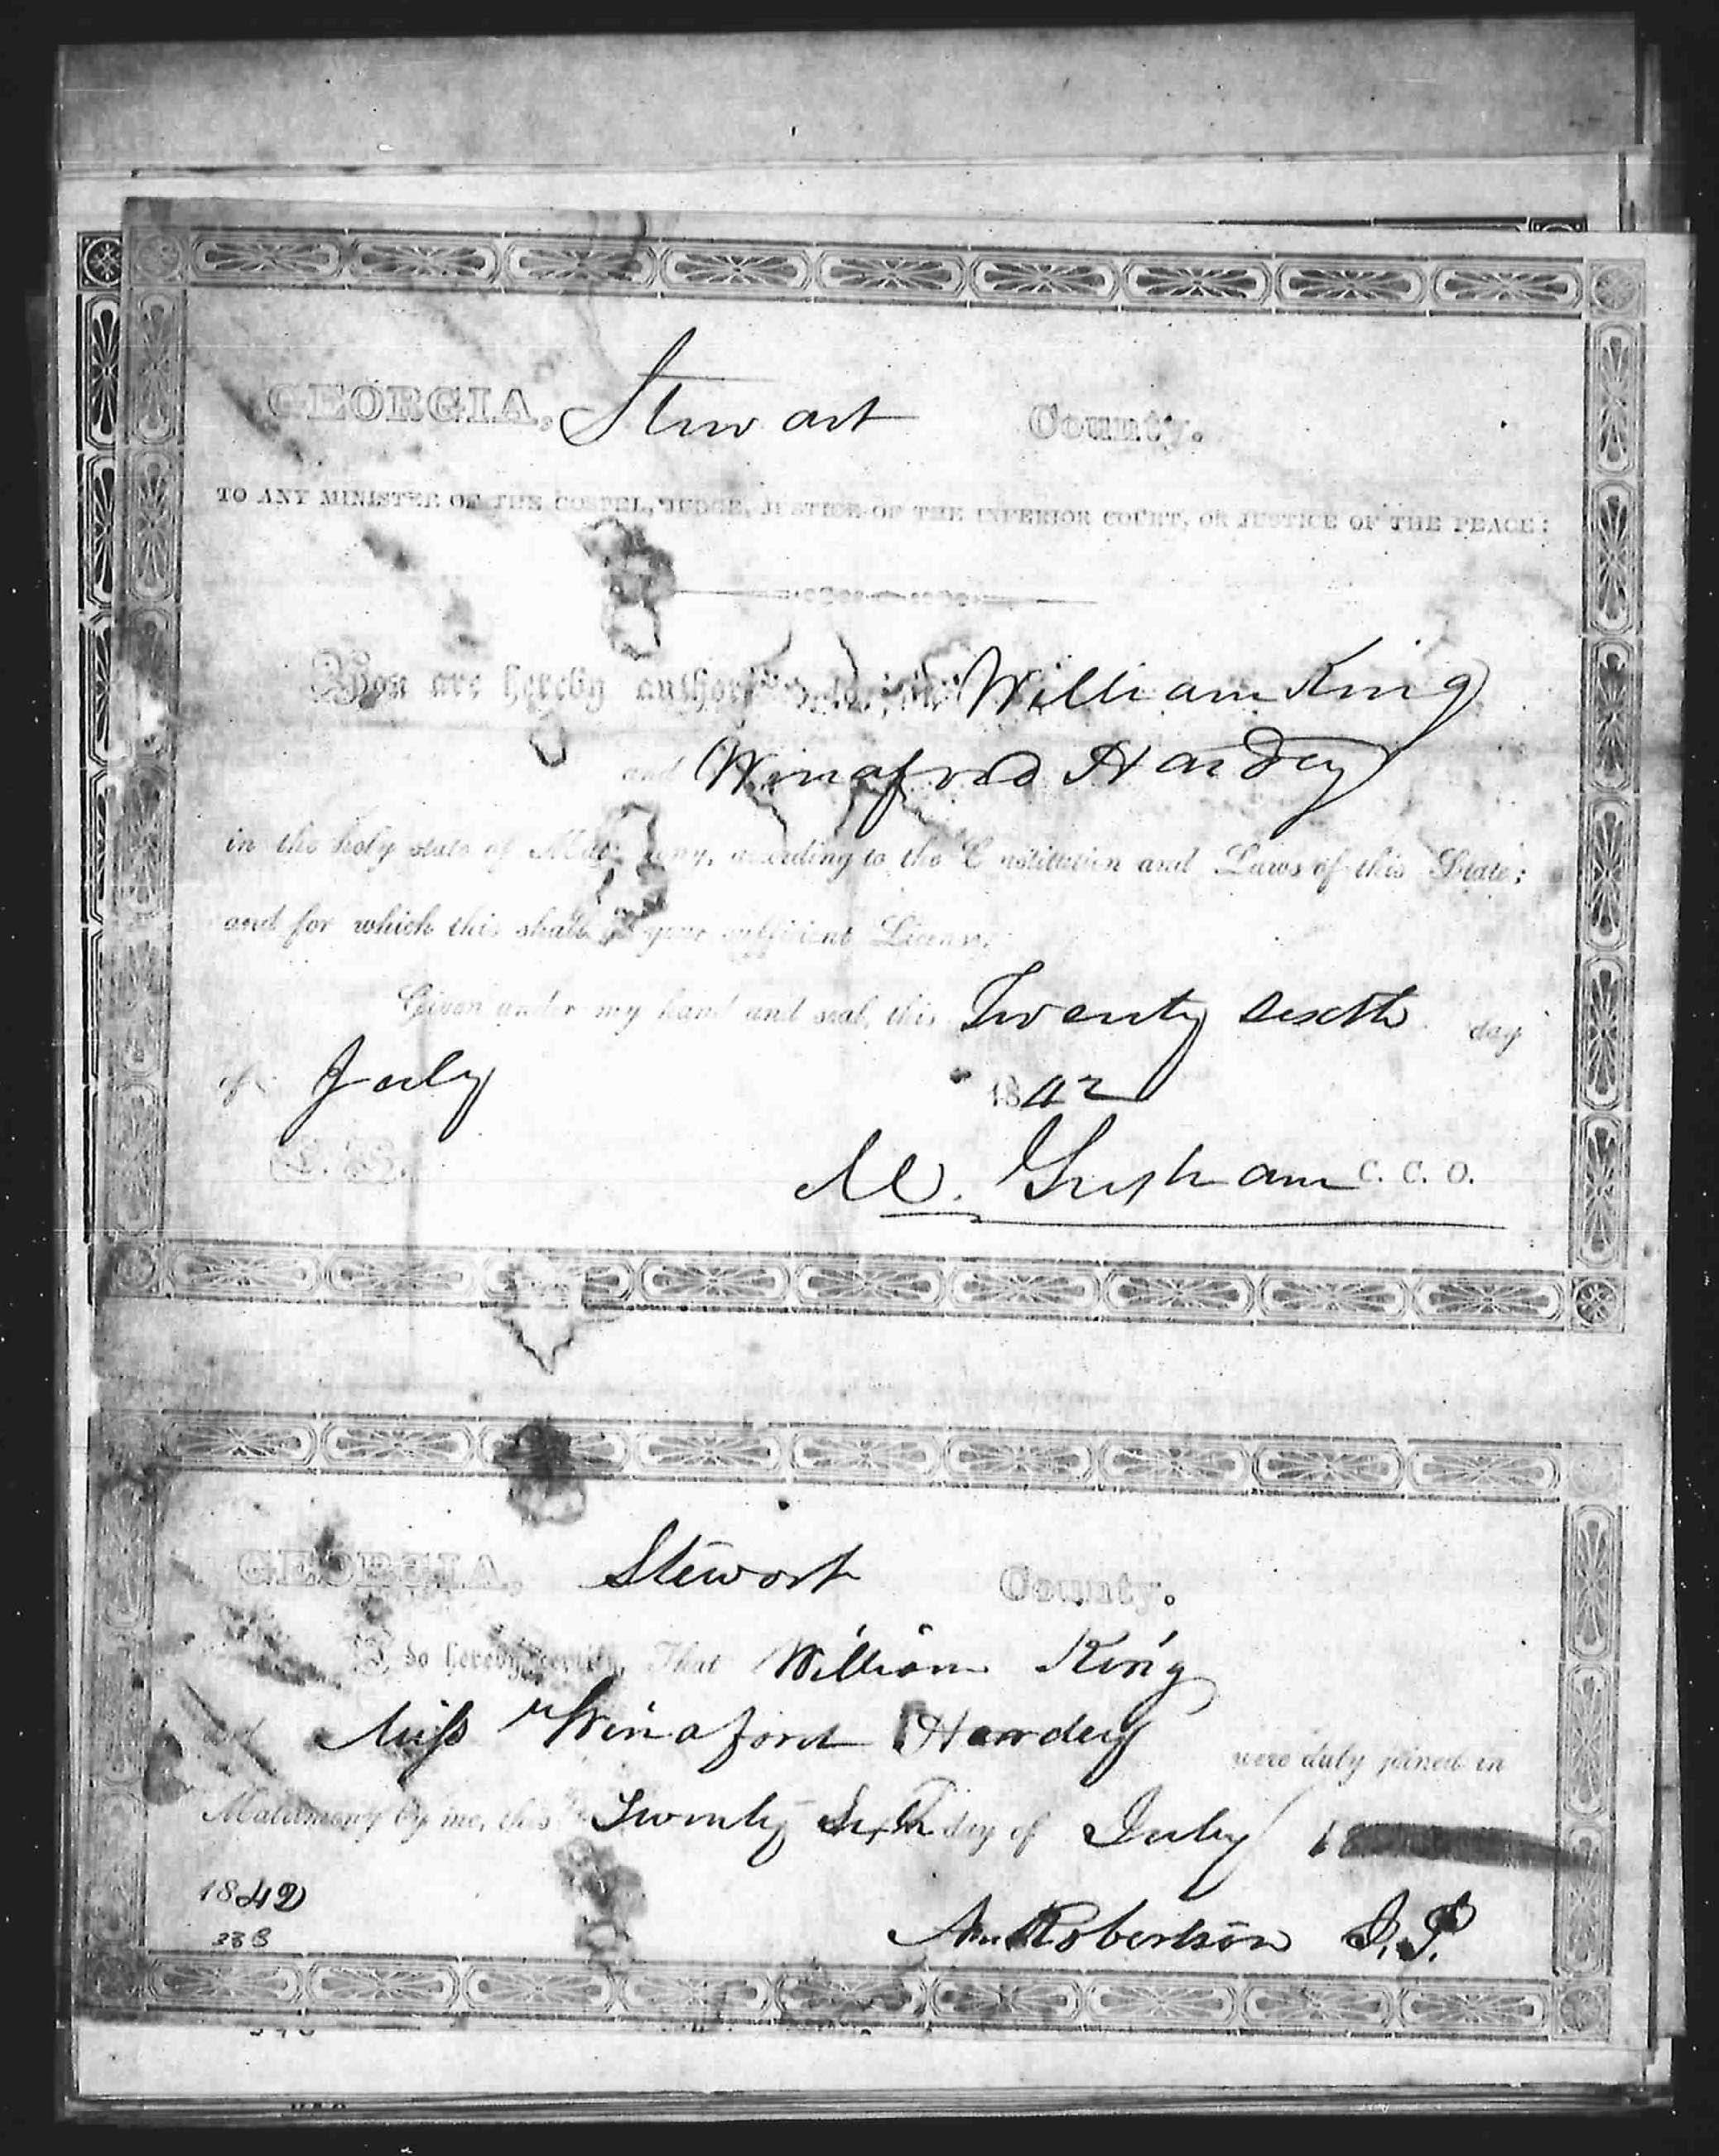 GEORGIA, Stewart County.
TO ANY MINISTER OF THE GOSPEL, JUDGE, JUSTICE OF THE INFERIOR COURT, OR JUSTICE OF THE PEACE:
You are hereby William King
and Winafred Hardey
in the holy state of Matrimony, according to the Constitution and Laws of this State;
and for which this shall be your sufficient License.
Given under my hand and seal, this Twenty sixth day
of July 1842
L. S.
M. Gresham C. C. O.
GEORGIA, Stewart County.
I do hereby certify, That William King
and Miss Winaford Hardey were duly joined in
Matrimony by me, this Twenty Sixth day of July
1842
338
Robertson J. P.